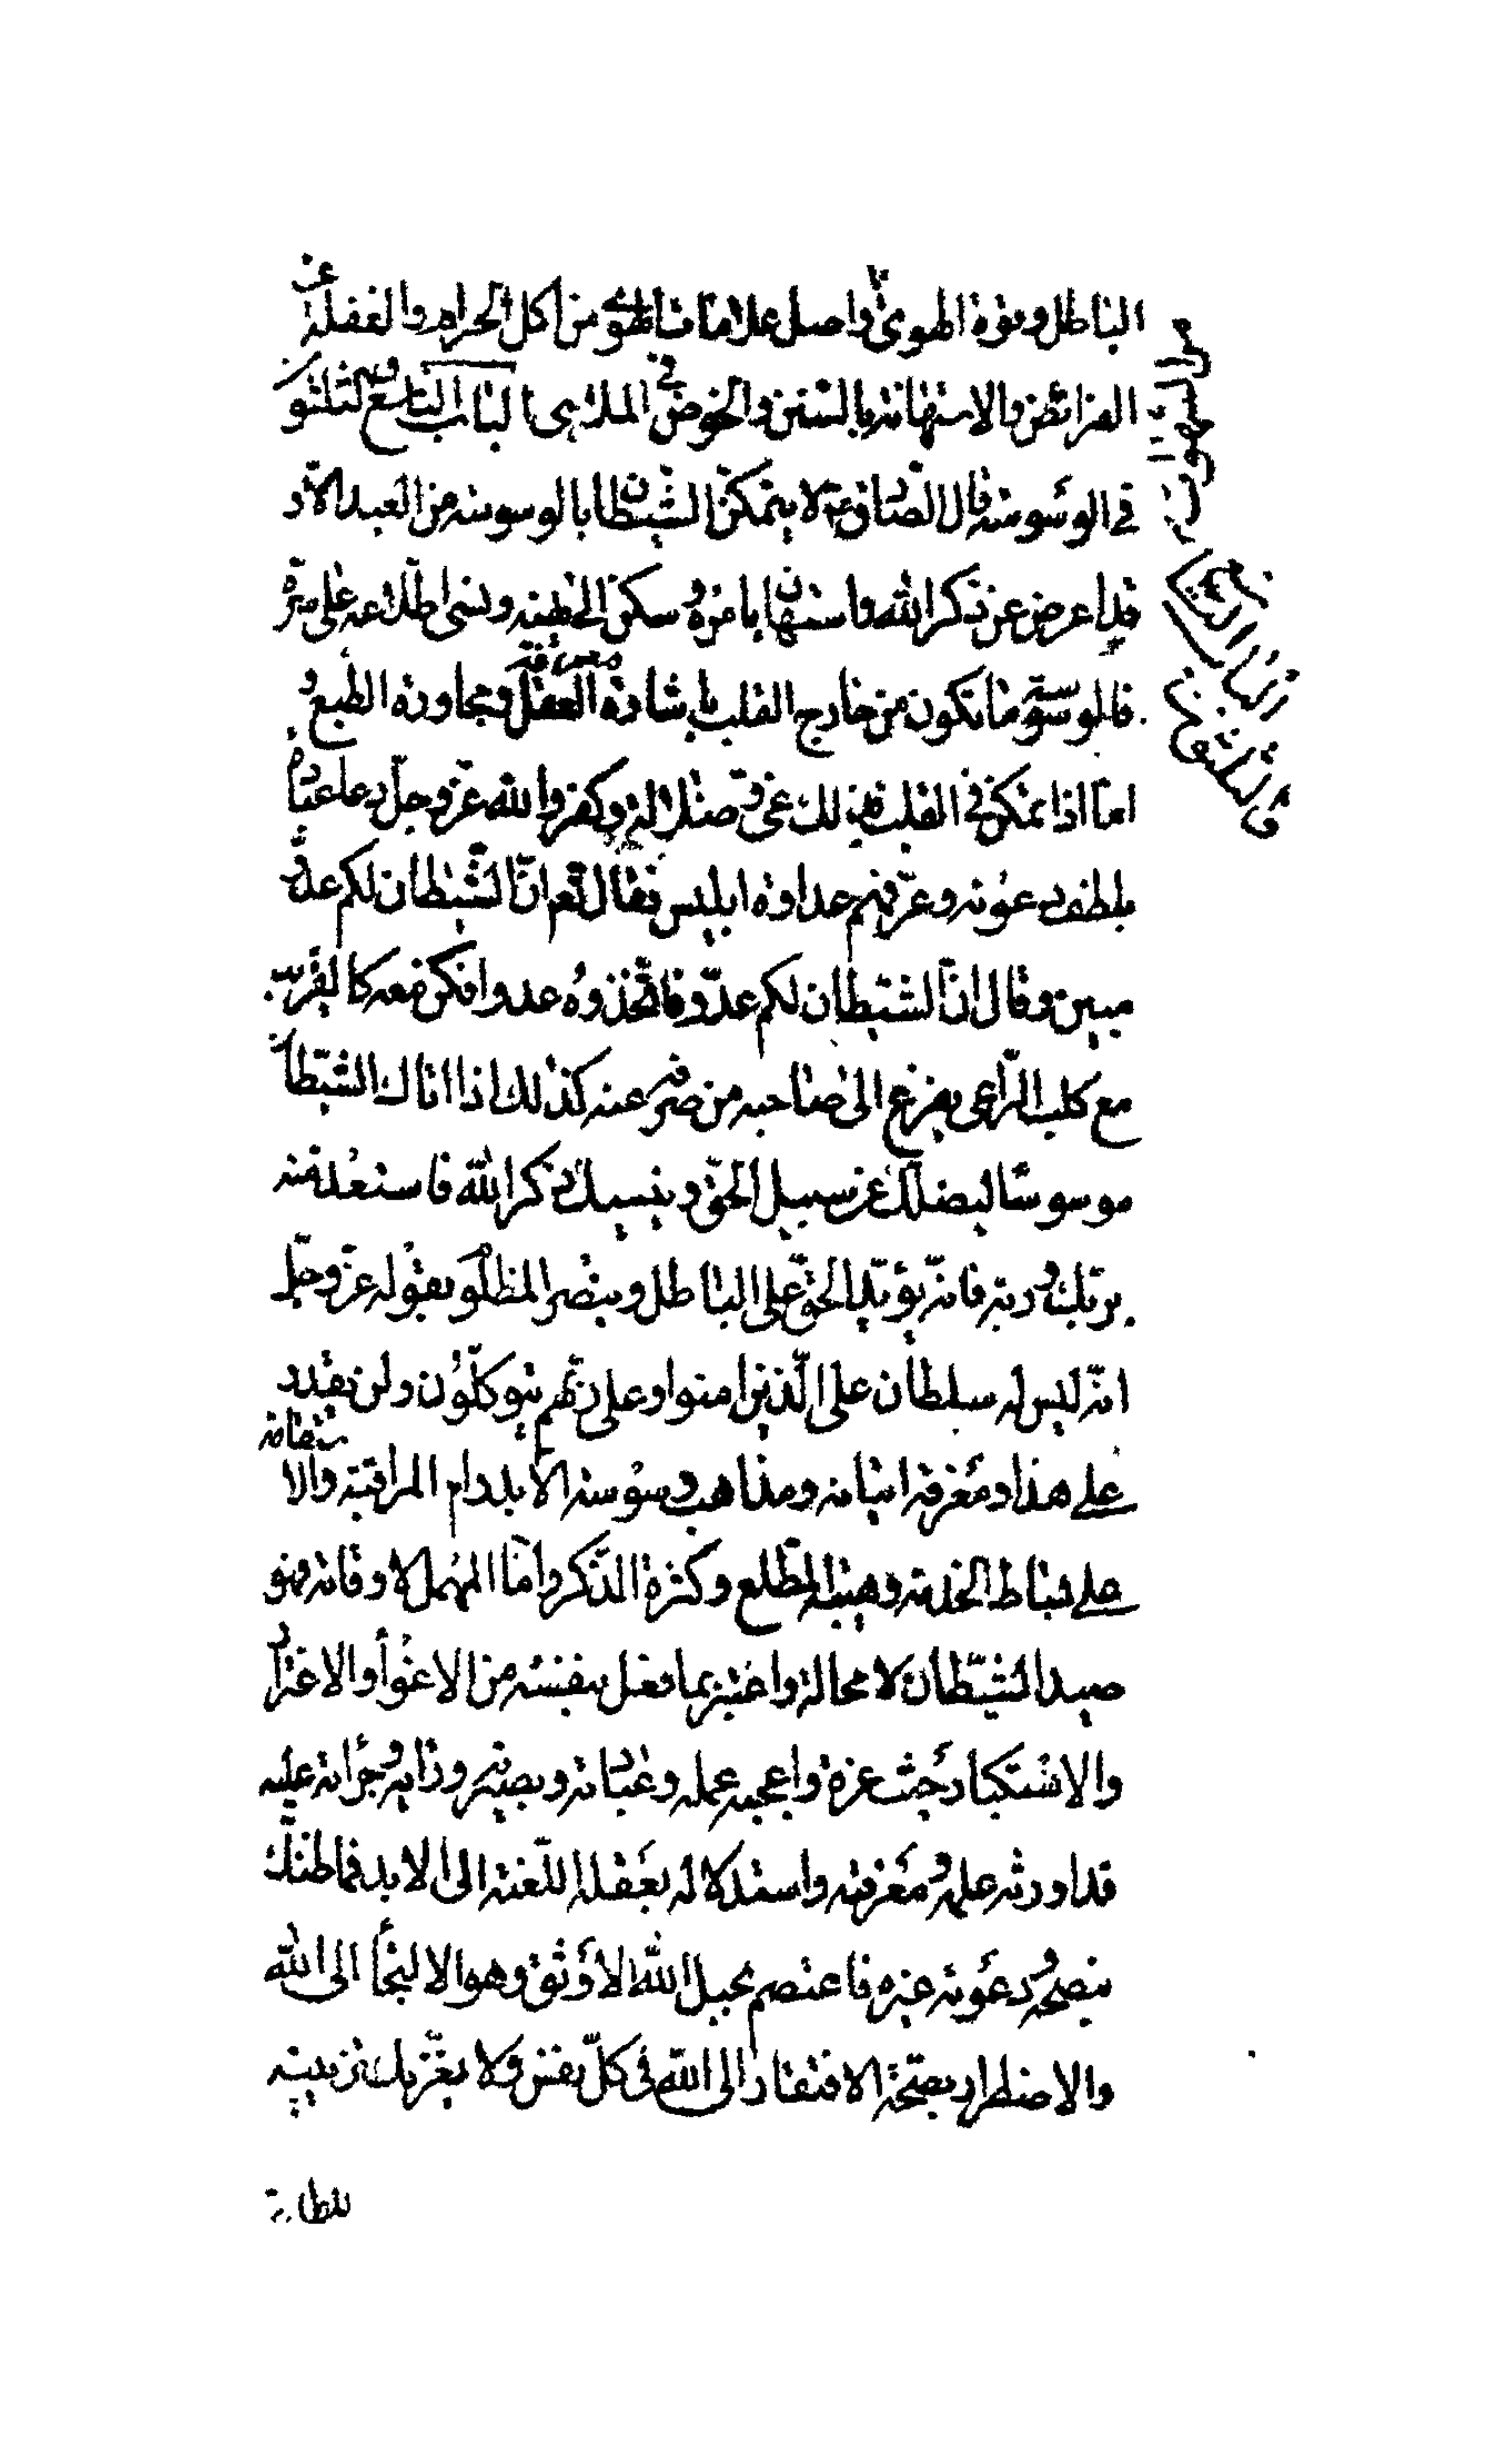 الباطل وقوة الهوى واصل علامات الهوى من اكل الحرام والغفلة عن
الفرائض والاستهانة بالسنن والخوض في الملاهى الباب التاسع والثلثون
في الوسوسة قال الصادق ع لا يتمكن الشيطان بالوسوسة من العبد الا و
قد اعرض عن ذكر الله واستهان بامره وسكن الى نهيه ونسى اطلاعه على سره
فالوسوسة ما تكون من خارج القلب باشارة معرفة العقل ومجاورة الطبع و
اما اذا تمكن في القلب فذلك غى وضلالة وكفر والله عز وجل دعا عباده
بلطف دعوته وعرفهم عداوة ابليس فقال تعم ان الشيطان لكم عدو
مبين وقال ان الشيطان لكم عدو فاتخذوه عدوا فكن معه كالغريب
مع كلب الراعى يفزع الى صاحبه من صرفه عنه كذلك اذا اتاك الشيطان
موسوسا ليضلك عن سبيل الحق وينسيك ذكر الله فاستعذ منه
بربك وربه فانه يؤيد الحق على الباطل وينصر المظلوم بقوله عز وجل
انه ليس له سلطان على الذين امنوا وعلى ربهم يتوكلون ولن يقدر
على هذا ومعرفة اتيانه ومذاهب وسوسته الا بدوام المراقبة والاستقامة
على بساط الخدمة وهيبة المطلع وكثرة الذكر واما المهمل لاوقاته فهو
صيد الشيطان لا محالة واعتبر بما فعل بنفسه من الاغواء والاغترار
والاستكبار حيث غره واعجبه عمله وعبادته وبصيرته ورايه وجرأته عليه
قد اورثه علمه ومعرفته واستدلاله بعقله اللعنة الى الابد فما ظنك
بنصحه ودعوته غيره فاعتصم بحبل الله الاوثق وهو الالتجاء الى الله
والاضطرار بصحة الافتقار الى الله في كل نفس ولا يغرنك تزيينه
للطاعة